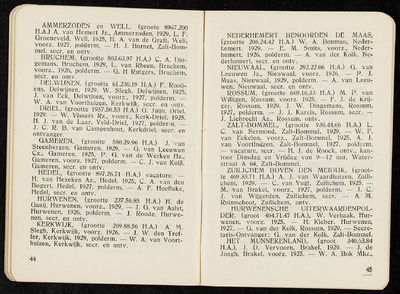 AMMERZODEN en WELL. (grootte 8967,200
H.A.) A. van Hemert Jz., Ammerzoden, 1929, L. F.
Groeneveld, Well, 1925, H. A. van de Graft, Well,
voorz. 1927, polderm. — H. J. Burnet, Zalt-Bom-
mel, secr. en ontv.
BRUCHEM. (grootte 503.65.97 H.A.) C. A. Din-
gemans, Bruchem, 1929, L. van Rheen, Bruchem,
voorz., 1926, polderm. — G. H. Rutgers, Bruchem,
secr. en ontv.
DELWIJNEN. (grootte 61.236.19 H.A.) F. Rooij-
ens, Delwijnen, 1929, W. Slegh, Delwijnen, 1925,
J. van Eck, Delwijnen, voorz., 1927, polderm. —
W. A. van Voorthuizen, Kerkwijk, secr. en ontv.
DRIEL. (grootte 1957.50.53 H.A.) G. Juijn, Driel,
1929. — W. Vissers Rz., voorz., Kerk-Driel, 1925,
H. J. van de Laar, Veld-Driel, 1927, polderm. —
J. C. R. B. van Campenhout, Kerkdriel, secr. en
ontvanger.
GAMEREN, (grootte 580.29.96 H.A.) J. van
Steenbergen, Gameren, 1929. — G. van Leeuwen
Gz., Gameren, 1925, P. G. van de Werken Hz.,
Gameren, voorz., 1927, polderm. — C. J. van Kuijl,
Gameren, secr. en ontv.
HEDEL, (grootte 807.76.21 H.A.) vacature. —
H. van Hezerken Az., Hedel, 1925, C. A. van den
Bogert, Hedel, 1927, polderm. — A. F. Hoeflake,
Hedel, secr. en ontv.
HURWENEN, (grootte 237.56.85 H.A.) H. de
Gaaij, Hurwenen, voorz., 1929. — J. G. van Aalst,
Hurwenen, 1926, polderm. — J. Roode, Hurwe-
nen, secr. en ontv.
KERKWIJK, (grootte 269.88.56 H.A.) A. M.
Slegh, Kerkwijk, voorz. 1926. — J. W. den Tref-
fer, Kerkwijk, 1929, polderm. — W. A. van Voort-
huizen, Kerkwijk, secr. en ontv.
44
NEDERHEMERT BENOORDEN DE MAAS,
(grootte 206.24.42 H.A.) W. A. Bouman, Neder-
hemert, 1929. — E. M. Smits, voorz., Neder-
hemert, 1926, polderm. — A. van der Kolk, Ne-
derhemert, secr. en ontv.
NIEUWAAL, (grootte 292.22.06 H.A.) G. van
Leeuwen Jz., Nieuwaal, voorz., 1926. — P. J.
Maas, Nieuwaal, 1929, polderm. — A. van Leeu-
wen, Nieuwaal, secr. en ontv.
ROSSUM, (grootte 669.16.33 H.A.) M. P. van
Willigen, Rossum, voorz. 1925. — F. J. de Krij-
ger, Rossum, 1929, J. W. Dingemans, Rossum,
1927, polderm. — J. J. Karels, Rossum, secr. —
J. Lichtrecht Az., Rossum, ontv.
ZALT-BOMMEL, (grootte 910.44.66 H.A.) L.
C. van Sermond, Zalt-Bommel, 1929. — W. F.
van Eekelen, voorz., Zalt-Bommel, 1925, A. J.
van Voorthuijsen, Zalt-Bommel, 1927, polderm.
— vacature, secr. — H. J. de Roock, ontv., kan-
toor Dinsdag en Vrijdag van 9—12 uur, Water-
straat A 64, Zalt-Bommel.
ZUILICHEM BOVEN DEN MEIDIJK, (groot-
te 469.83.71 H.A.) J. A. van Waardhuizen, Zuili-
chem, 1929. — C. van Vugt, Zuilichem, 1925. —
M. van Brakel, voorz., 1927, polderm. — J. C.
J. van Wijngerden, Zuilichem, secr. — A. M.
Ruimschoot, Zuilichem, ontv.
HURWENENSCHE UITERWAARDENPOL-
DER, (groot 404.71.47 H.A.), W. Verhaak, Hur-
wenen, voorz. 1925. — H. Kleber, Hurwenen,
1927. — G. van der Kolk, Rossum, 1929. — Secre-
taris-Ontvanger: G. van der Kolk, Zalt-Bommel.
HET MUNNEKENLAND, (groot 340.63.84
H.A.), J. D. Vervoorn, Brakel, 1929. — J. de
Jongh, Brakel, voorz. 1925. — W. A. Bok Mhz.,
45